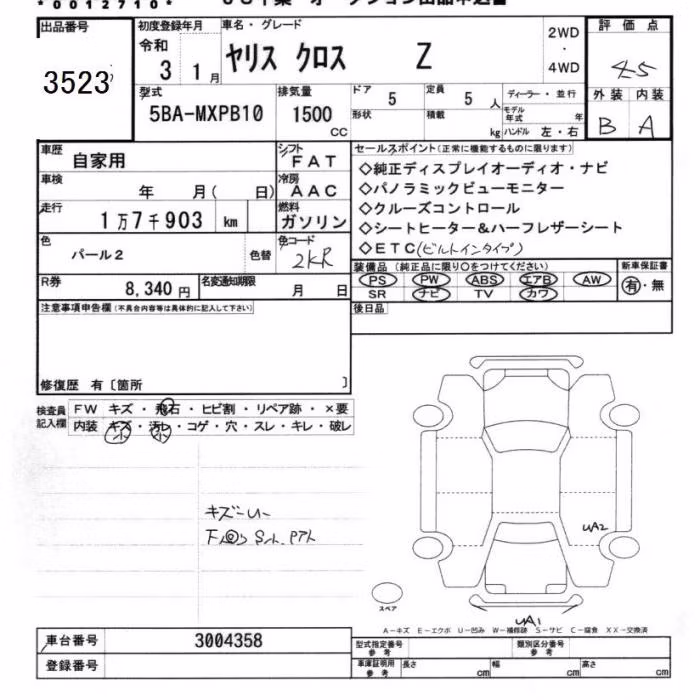 *0012710*
出品番号
3523
初度登録年月
令和
3 1月
車名・グレード
ヤリス クロス Z
2WD
・
4WD
評価点
4.5
外装 内装
B A
型式
5BA-MXPB10
排気量
1500
CC
ドア
5
定員
5 人
ディーラー・並行
形状
積載
kg
モデル年式 年
ハンドル 左・右
車歴
自家用
シフト
FAT
車検
年 月( 日)
冷房
AAC
走行
1万7千903 km
燃料
ガソリン
色
パール2
色替
色コード
2KR
R券
8,340 円
名変通知期限
月 日
セールスポイント(正常に機能するものに限ります)
◇純正ディスプレイオーディオ・ナビ
◇パノラミックビューモニター
◇クルーズコントロール
◇シートヒーター&ハーフレザーシート
◇ETC(ビルトインタイプ)
装備品(純正品に限り○をつけてください)
PS PW ABS エアB AW
SR ナビ TV カワ
新車保証書
有・無
後日品
注意事項申告欄(不具合内容等は具体的に記入して下さい)
修復歴 有〔箇所 〕
検査員
記入欄
FW キズ・飛石・ヒビ割・リペア跡・×要
内装 キズ・汚レ・コゲ・穴・スレ・キレ・破レ
小 小
キズ～U～
UA2
スペア
UA1
A－キズ E－エクボ U－凹み W－補修跡 S－サビ C－腐食 XX－交換済
車台番号
3004358
登録番号
型式指定番号
参考
類別区分番号
参考
車庫証明用
参考
長さ cm
幅 cm
高さ cm